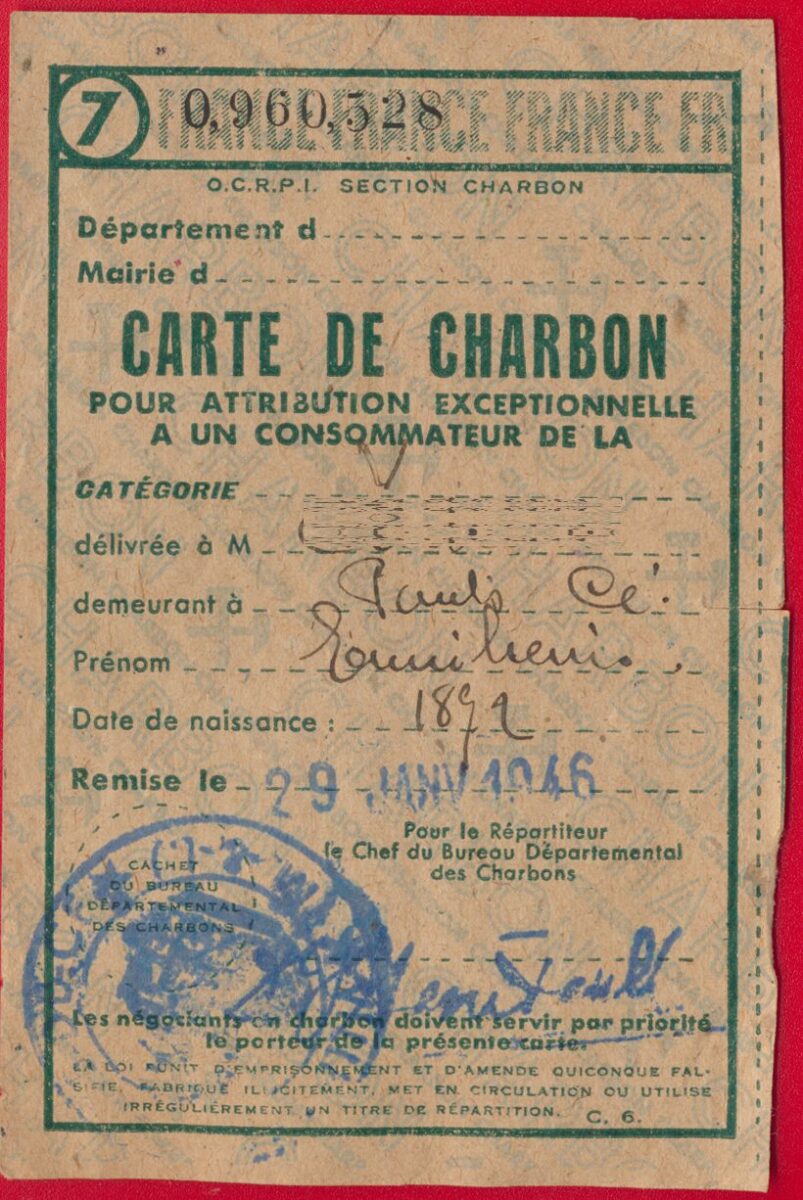 7 0,960,528 FRANCE FRANCE FRANCE FR
O.C.R.P.I. SECTION CHARBON
Département d
Mairie d
CARTE DE CHARBON
POUR ATTRIBUTION EXCEPTIONNELLE
A UN CONSOMMATEUR DE LA
CATÉGORIE V
délivrée à M
demeurant à
Prénom
Date de naissance : 1892
Remise le 29 JANV 1946
Pour le Répartiteur
le Chef du Bureau Départemental
des Charbons
CACHET
DU BUREAU
DÉPARTEMENTAL
DES CHARBONS
Les négociants en charbon doivent servir par priorité
le porteur de la présente carte.
LA LOI PUNIT D'EMPRISONNEMENT ET D'AMENDE QUICONQUE FAL-
SIFIE, FABRIQUE ILLICITEMENT, MET EN CIRCULATION OU UTILISE
IRRÉGULIÉREMENT UN TITRE DE RÉPARTITION. C. 6.